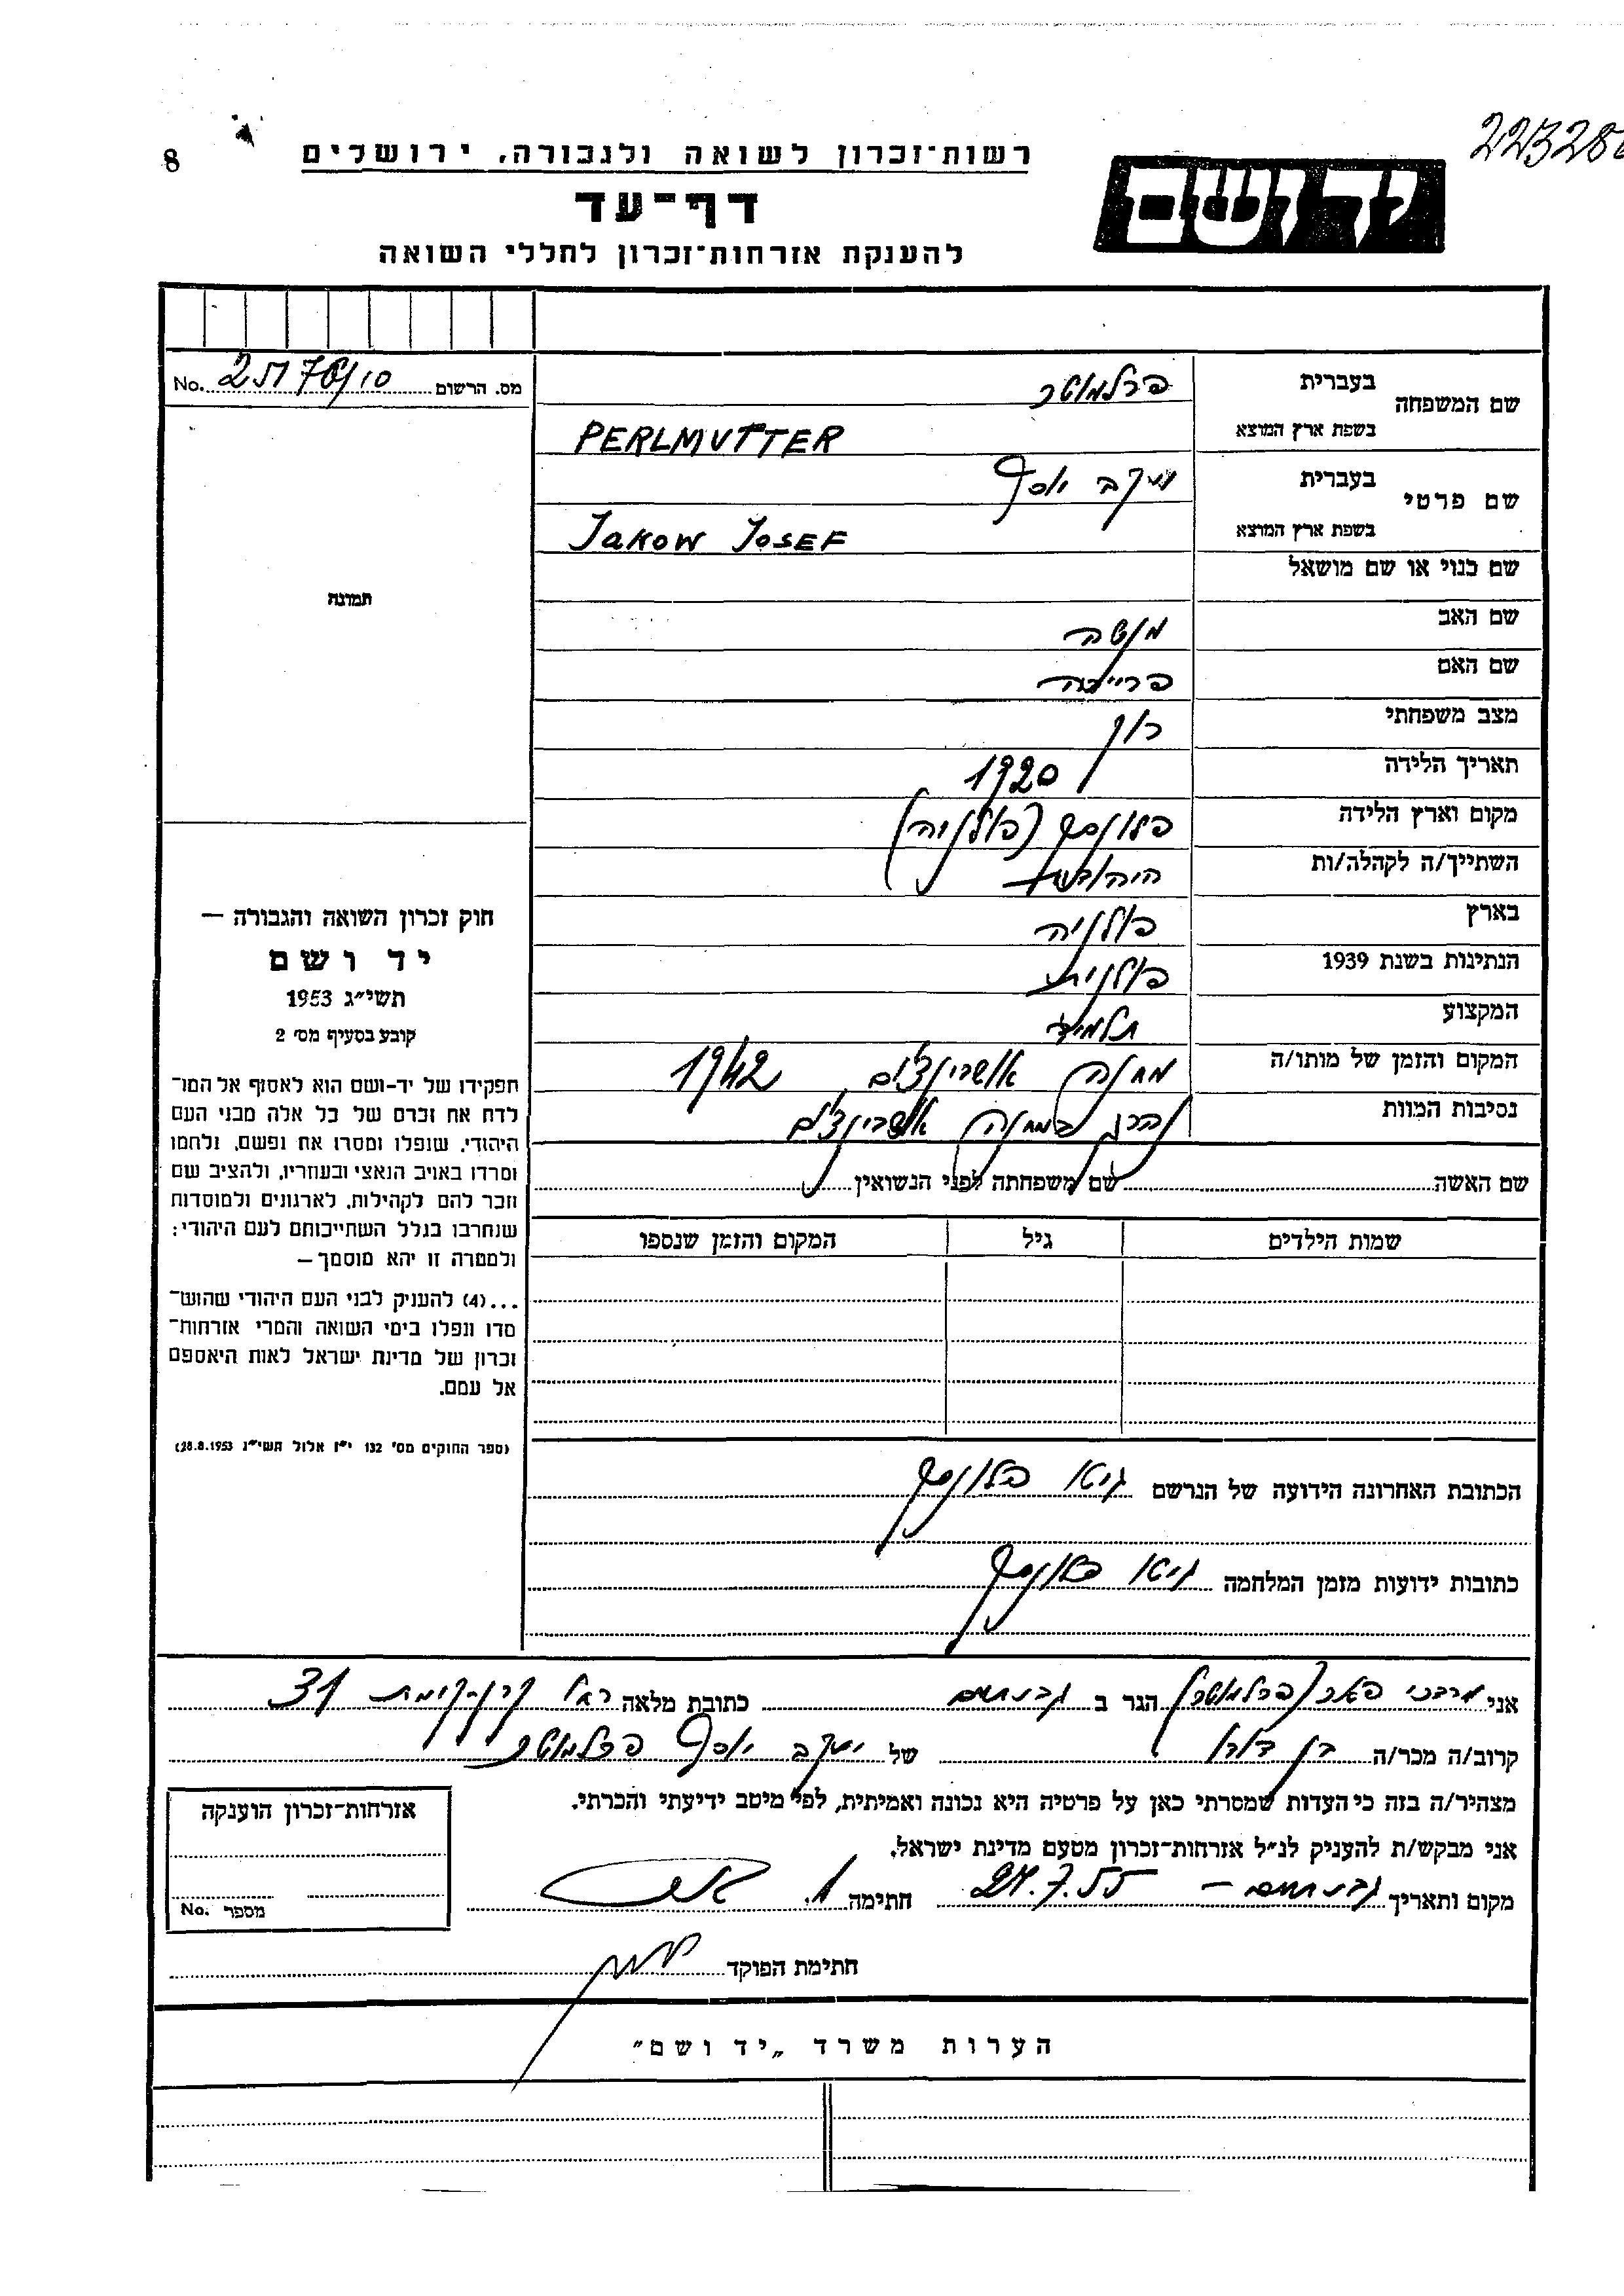 רשות־זכרון לשואה ולגבורה, ירושלים
8
דף־עד
להענקת אזרחות־זכרון לחללי השואה
יד ושם
מס. הרשום No.
שם המשפחה
בעברית פרלמוטר
בשפת ארץ המוצא PERLMUTTER
שם פרטי
בעברית יעקב יוסף
בשפת ארץ המוצא JAKOW JOSEF
שם כנוי או שם מושאל
שם האב מנשה
שם האם
מצב משפחתי רווק
תאריך הלידה 1920
מקום וארץ הלידה פלונסק (פולניה)
השתייך/ה לקהלה/ות היהודית
בארץ פולניה
הנתינות בשנת 1939 פולנית
המקצוע תלמיד
המקום והזמן של מותו/ה מחנה אושוינצ'ים 1942
נסיבות המוות נהרג במחנה אושוינצ'ים
שם האשה שם משפחתה לפני הנשואין
שמות הילדים גיל המקום והזמן שנספו
תמונה
חוק זכרון השואה והגבורה —
יד ושם
תשי״ג 1953
קובע בסעיף מס׳ 2
תפקידו של יד-ושם הוא לאסוף אל המו־
לדת את זכרם של כל אלה מבני העם
היהודי, שנפלו ומסרו את נפשם, נלחמו
ומרדו באויב הנאצי ובעוזריו, ולהציב שם
וזכר להם לקהילות, לארגונים ולמוסדות
שנחרבו בגלל השתייכותם לעם היהודי;
ולמטרה זו יהא מוסמך —
...(4) להעניק לבני העם היהודי שהוש־
מדו ונפלו בימי השואה והמרי אזרחות־
זכרון של מדינת ישראל לאות היאספם
אל עמם.
(ספר החוקים מס׳ 132 י״ז אלול תשי״ג 28.8.1953)
הכתובת האחרונה הידועה של הנרשם גיטו פלונסק
כתובות ידועות מזמן המלחמה גיטו פלונסק
אני מרדכי (פרלמוטר) הגר ב גבעתיים כתובת מלאה רח' קרן-קימת 31
קרוב/ה מכר/ה בן דוד של יעקב יוסף פרלמוטר
מצהיר/ה בזה כי העדות שמסרתי כאן על פרטיה היא נכונה ואמיתית, לפי מיטב ידיעתי והכרתי.
אני מבקש/ת להעניק לנ״ל אזרחות־זכרון מטעם מדינת ישראל.
מקום ותאריך גבעתיים — 7.55 חתימה
חתימת הפוקד
אזרחות־זכרון הוענקה
מספר No.
הערות משרד „יד ושם״